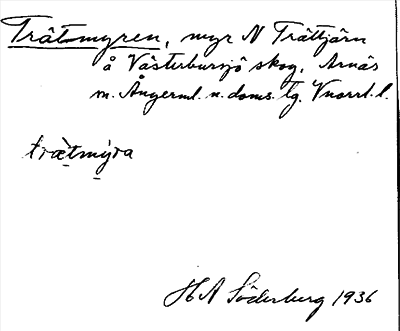 Trätmyren, myr N Trättjärn
å Västerbursjö skog, Arnäs
m. Ångerml. n. doms. tg. Vnorrl. l.
træ̀tmýra
H A Söderberg 1936